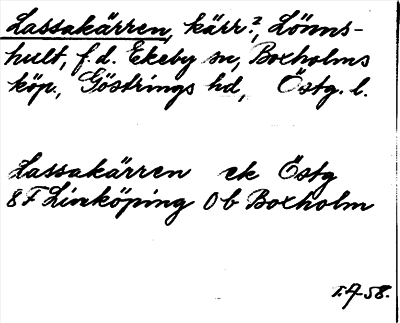 Lassakärren, kärr?, Lönns-
hult, f.d. Ekeby sn, Boxholms
köp., Göstrings hd, Östg. l.
Lassakärren ek Östg
8F Linköping 0b Boxholm
58.